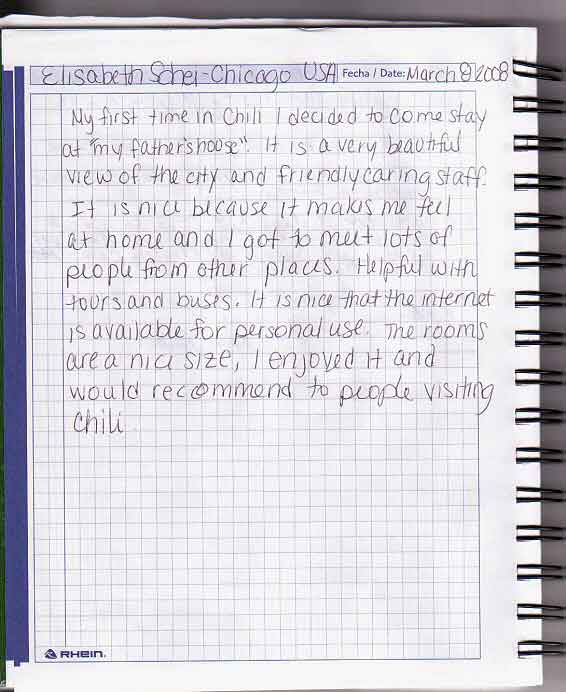 Elisabeth Schei-Chicago USA Fecha / Date: March 8 2008
My first time in Chili I decided to come stay
at "my father's house". It is a very beautiful
view of the city and friendly caring staff.
It is nice because it makes me feel
at home and I got to meet lots of
people from other places. Helpful with
tours and buses. It is nice that the internet
is available for personal use. The rooms
are a nice size, I enjoyed it and
would recommend to people visiting
Chili
RHEIN.